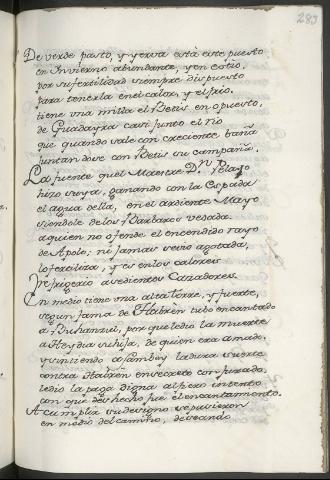 283
De verde pasto, y yerva está este puesto
en Invierno abundante, y en estio,
por su fertilidad siempre dispuesto
para tenerla en el calor, y el frio.
tiene una milla el Betis en opuesto,
de Guadayra casi junto el rio
que quando sale con creciente baña
juntandose con Betis su campaña.
La fuente quel Maestre D.n Pelayo
hizo suya, ganando con la Espada
el agua della, en el ardiente Mayo
siendole de los Barbaros vedada.
a quien no ofende el encendido rayo
de Apolo, ni jamas se vio agotada,
lo fertiliza, y es en los calores
Refrigerio a sedientos Cazadores.
En medio tiene una alta Torre, y fuerte,
segun fama de Habrén tubo encantado
a Buhanzul, por que le dio la muerte
a su hija, de quien era amado,
y sintiendo la dura suerte
contra Habrén en secreto conjurado
le dio la paga digna al fiero intento
con que des hecho fue el encantamento.
A cumplir su designo se pusieron
en medio del camino, deseando